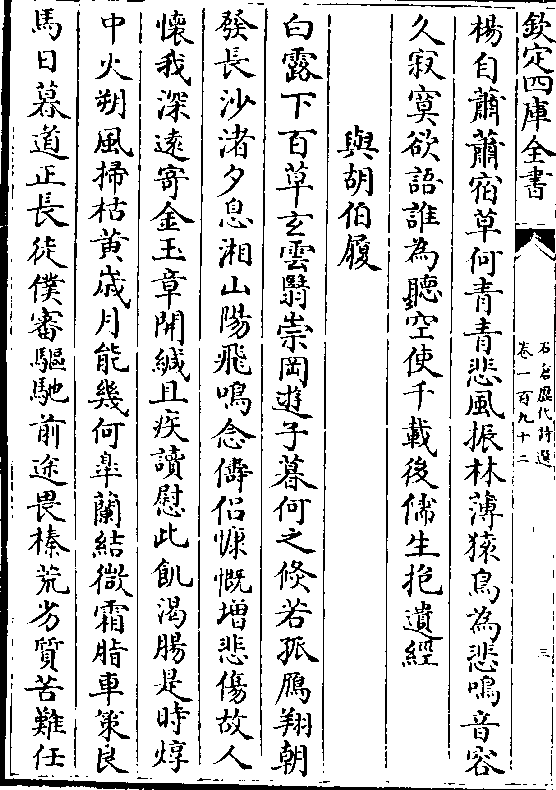 欽定四庫全書
石倉歷代詩選
卷一百九十二
三
楊白蕭蕭宿草何青青悲風振林薄猿鳥為悲鳴音容
久寂寞欲語誰為聽空使千載後儒生抱遺經
與胡伯履
白露下百草玄雲翳崇岡遊子暮何之倐若孤鴈翔朝
發長沙渚夕息湘山陽飛鳴念儔侣慷慨增悲傷故人
懷我深遠寄金玉章開緘且疾讀慰此飢渴腸是時焞
中火朔風掃枯黄歲月能幾何臯蘭結微霜脂車策良
馬日暮道正長徒僕審驅馳前途畏榛荒劣質苦難任